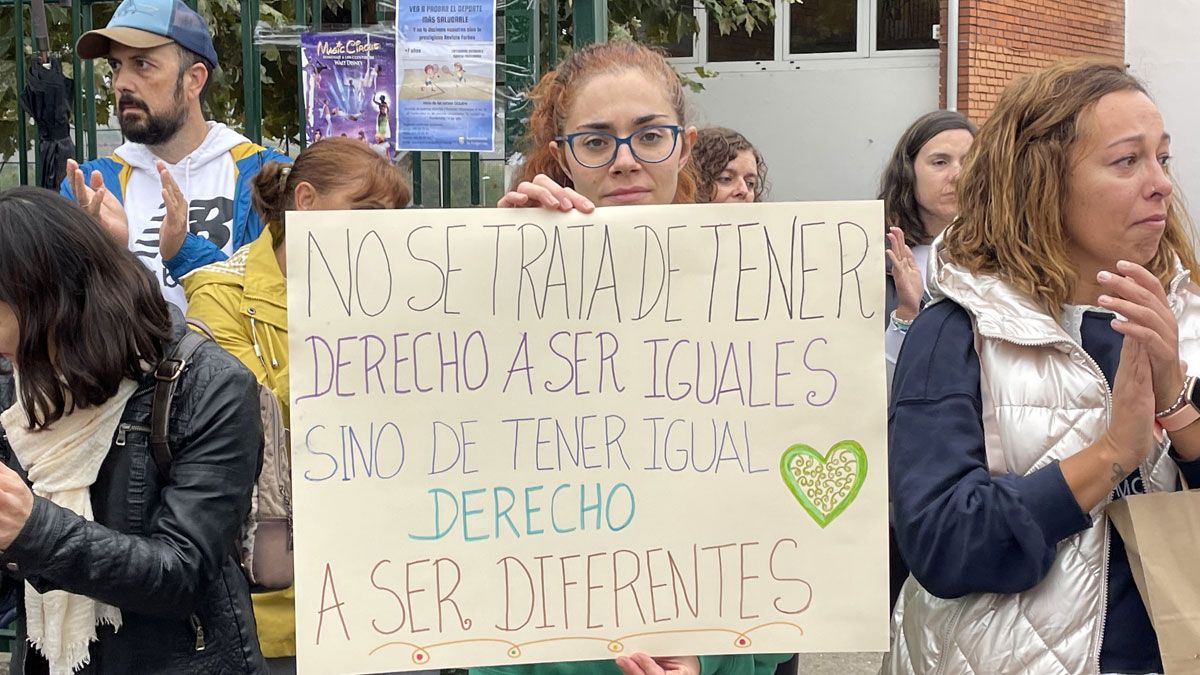 MAGIC CIRCUS
VEO A PROBAR EL DEPORTE
MÁS SALUDABLE
NO SE TRATA DE TENER
DERECHO A SER IGUALES
SINO DE TENER IGUAL
DERECHO
A SER DIFERENTES